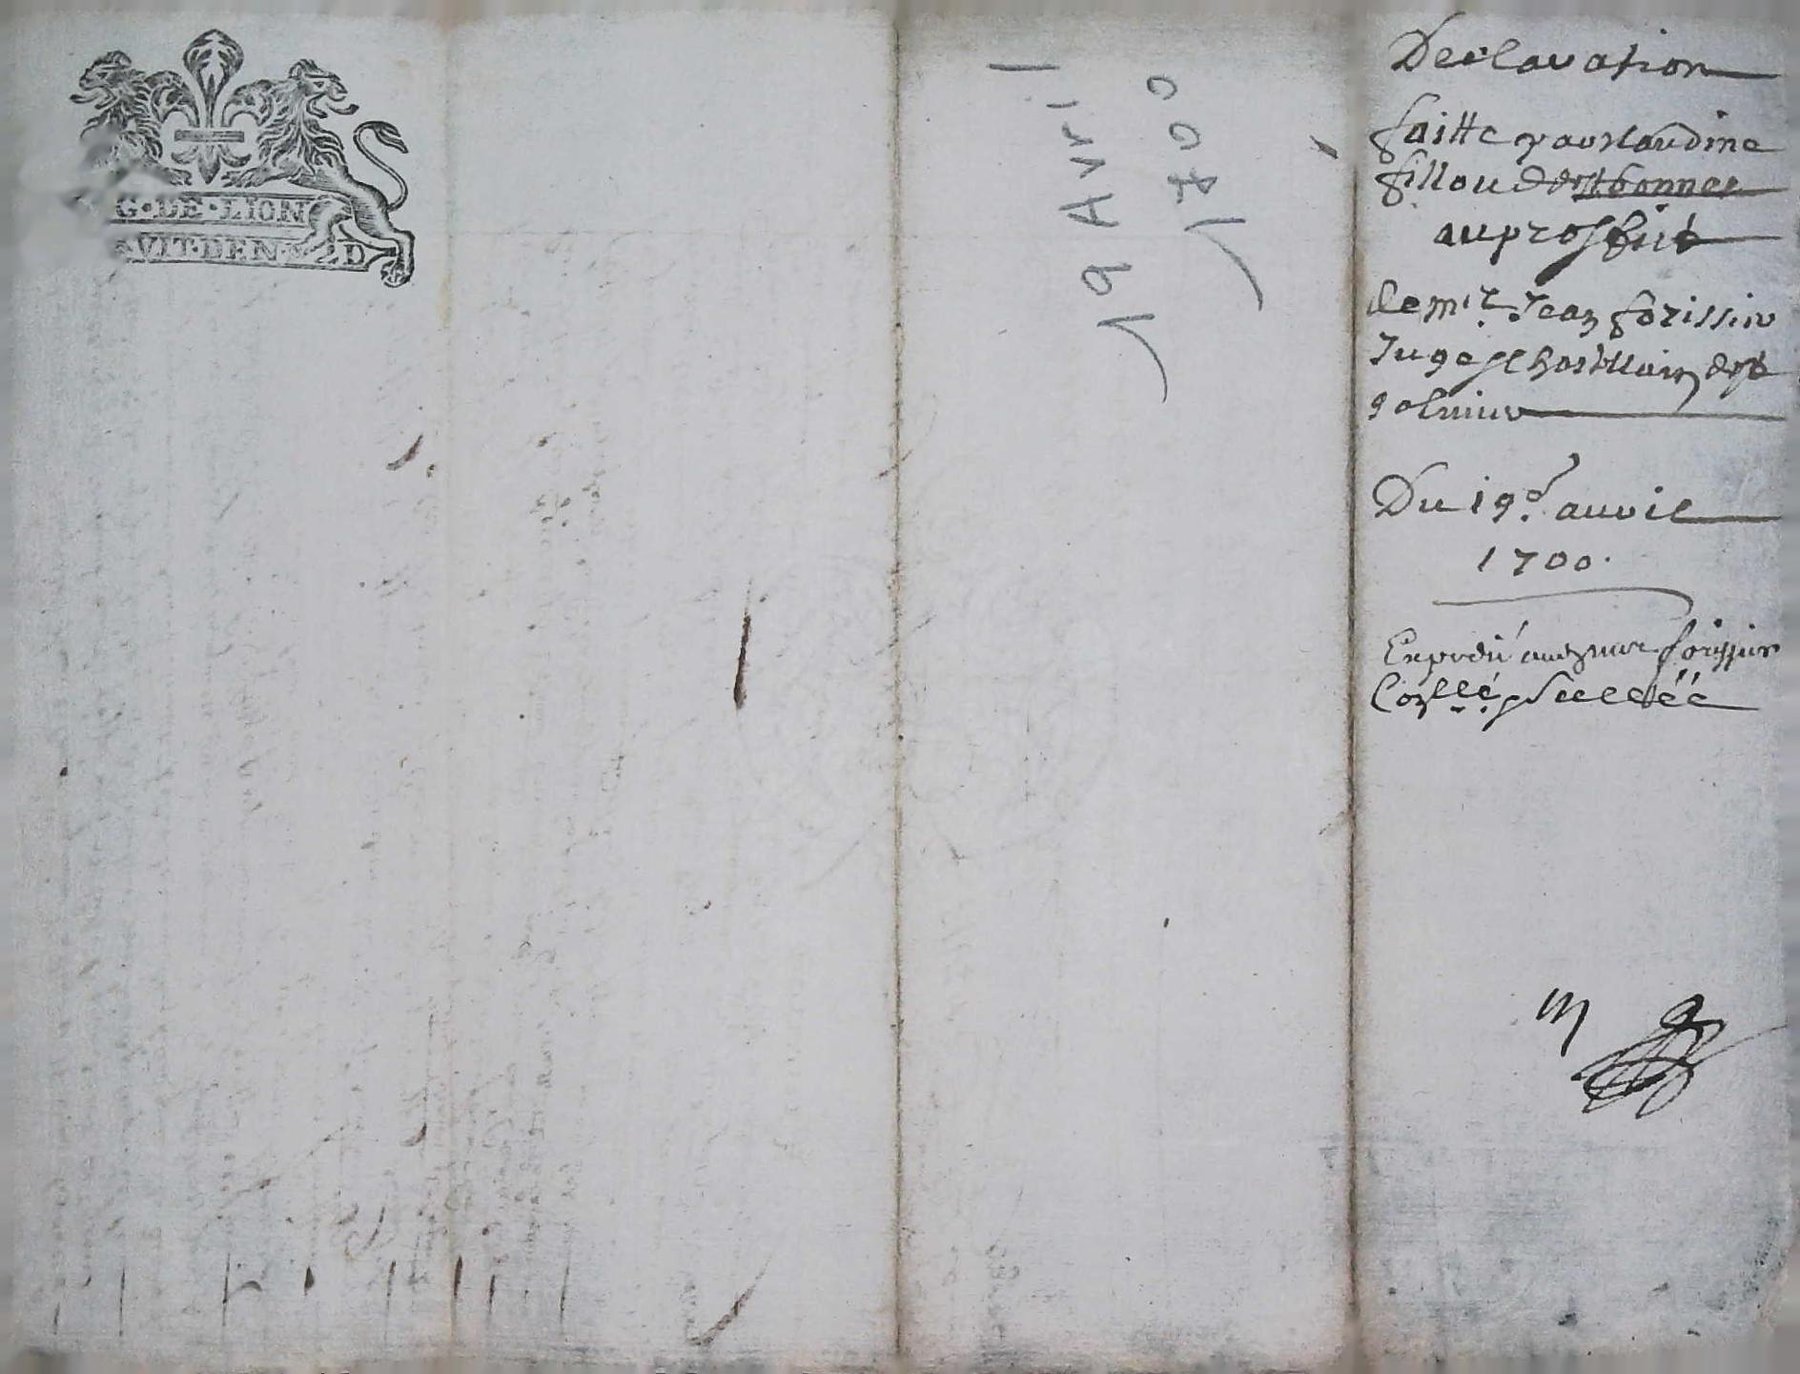 G·DE·LION
VIT·DEN· D
19 Avril
1700
Declaration
faitte par claudine
fillou de st bonnet
au proffit
de mre Jean forissier
Juge chastellain de st
galmier
Du 19e avril
1700.
Expedié forissier
Collé scellée